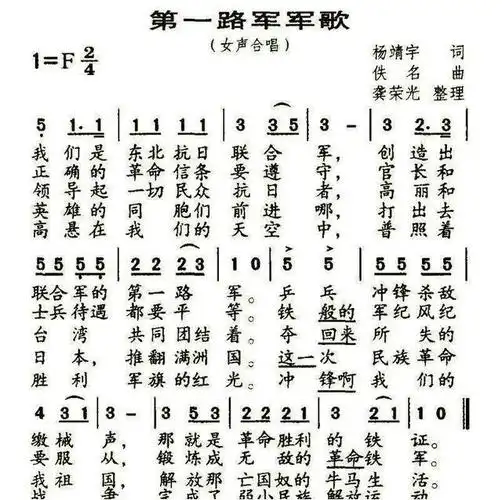 第一路军军歌
(女声合唱)
1=F 2/4
杨靖宇 词
佚名 曲
龚荣光 整理
5 1·1 1 1 1 1 3 3 (3 5) 3 - 3 2·3
我们是东北抗日联合军,创造出
正确的革命信条要遵守,官长和
领导起一切民众抗日者,高丽和
英雄的同胞们前进哪,打出去
高悬在我们的天空中,普照着
5 5 5 5 1 2 2 2 3 1 0 5 5 5 5 5 5
联合军的第一路军。乒乓冲锋杀敌
士兵待遇都要平等。铁般的军纪风纪
台湾共同团结着。夺回来所失的
日本,推翻满洲国。这一次民族革命
胜利军旗的红光。冲锋啊我们的
4 3 1 3 3 2 1 2 2 2 1 2 3 1 0
缴械声,那就是革命胜利的铁证。
要服从,锻炼成无敌的革命铁军。
我祖国,解放了亡国奴的牛马生活。